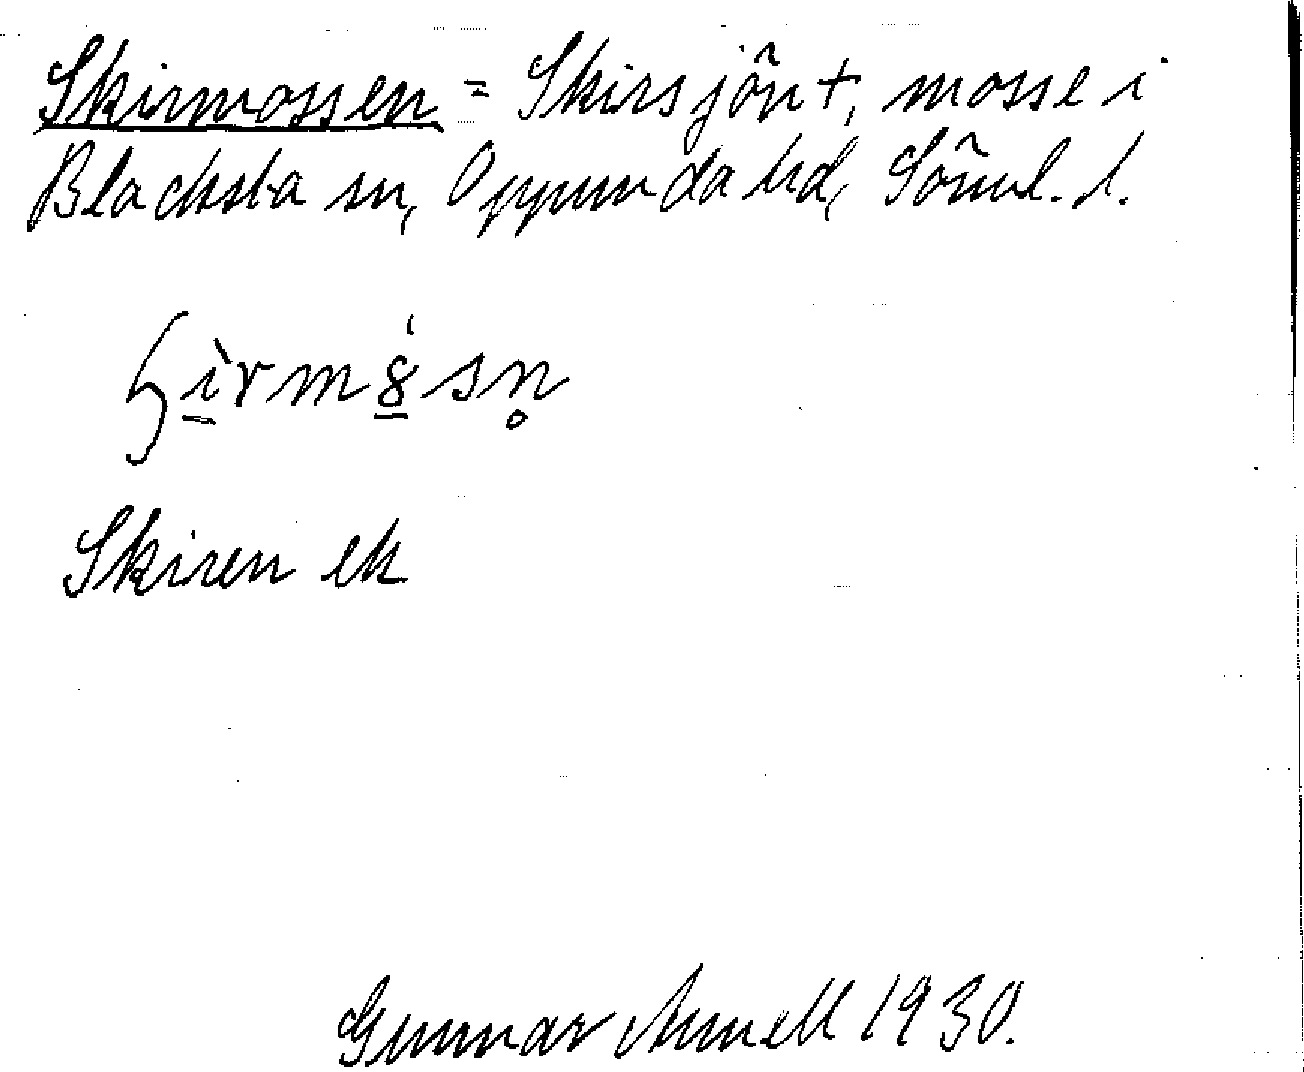 Skirmossen = Skirsjön +, mosse i
Blacksta sn, Oppunda hd, Söml. l.
Skiren ek
Gunnar Annell 1930.